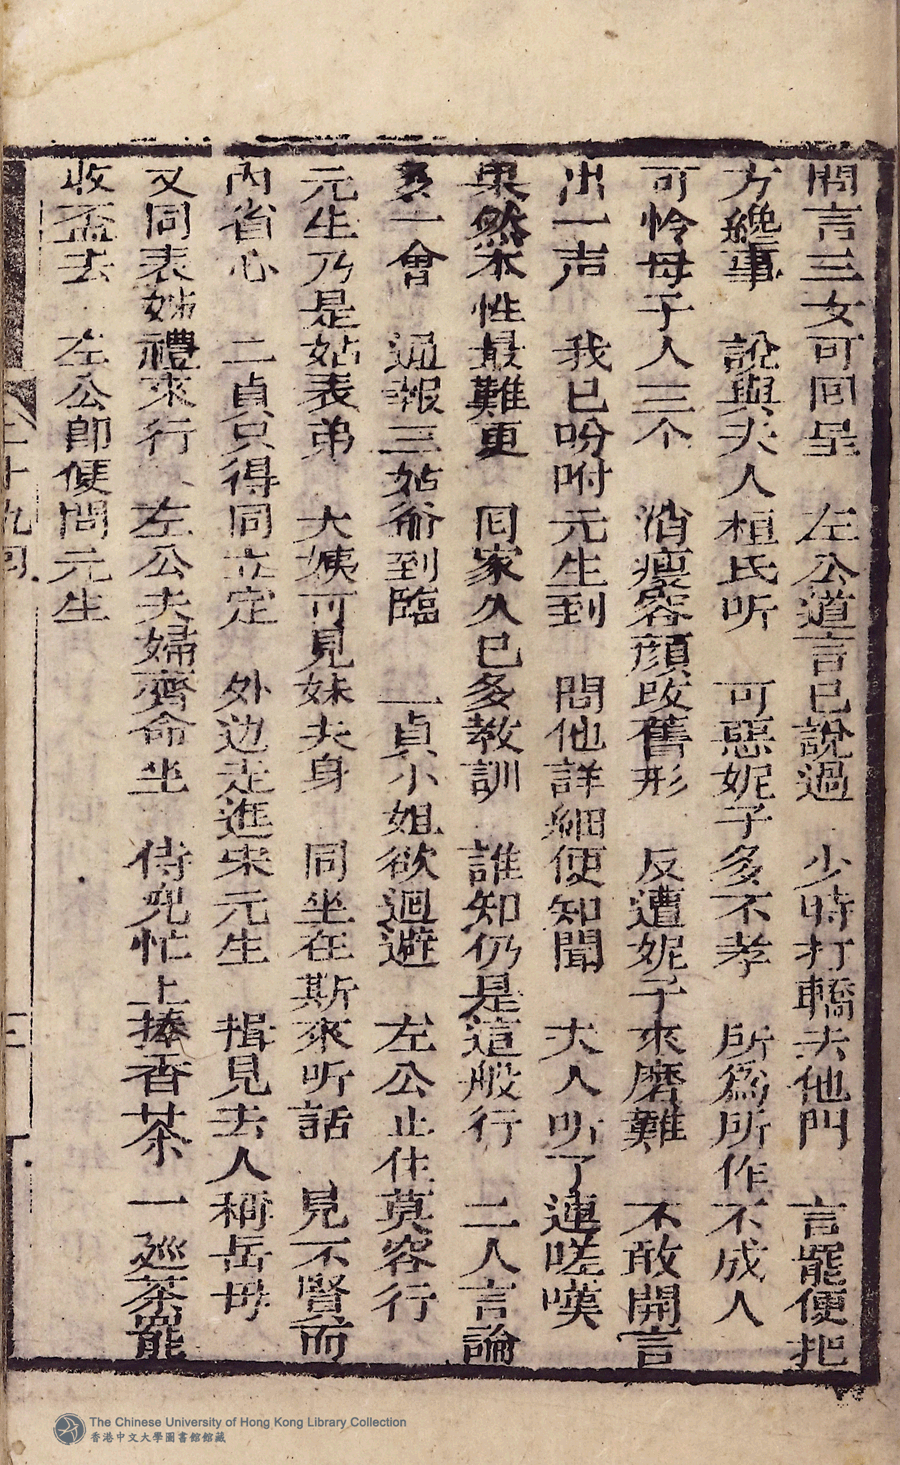 問言三女可回呈　左公道言已說過　少時打轎去他門　言罷便把
方纔事　說與夫人桓氏听　可惡妮子多不孝　所爲所作不成人
可怜母子人三个　消瘦容顏改舊形　反遭妮子來磨難　不敢開言
出一声　我已吩咐元生到　問他詳細便知聞　夫人听了連嗟嘆
果然本性最難更　囘家久已多教訓　誰知仍是這般行　二人言論
多一會　通報三姑爺到臨　一貞小姐欲迴避　左公止住莫容行
元生乃是姑表弟　大姨可見妹夫身　同坐在斯來听話　見不賢而
內省心　二貞只得同立定　外边走進宋元生　揖見夫人稱岳母
又同表姊禮來行　左公夫婦齊命坐　侍兒忙上捧香茶　一廵茶罷
收盃去　左公卽便問元生
二十九囘
三
The Chinese University of Hong Kong Library Collection
香港中文大學圖書館館藏